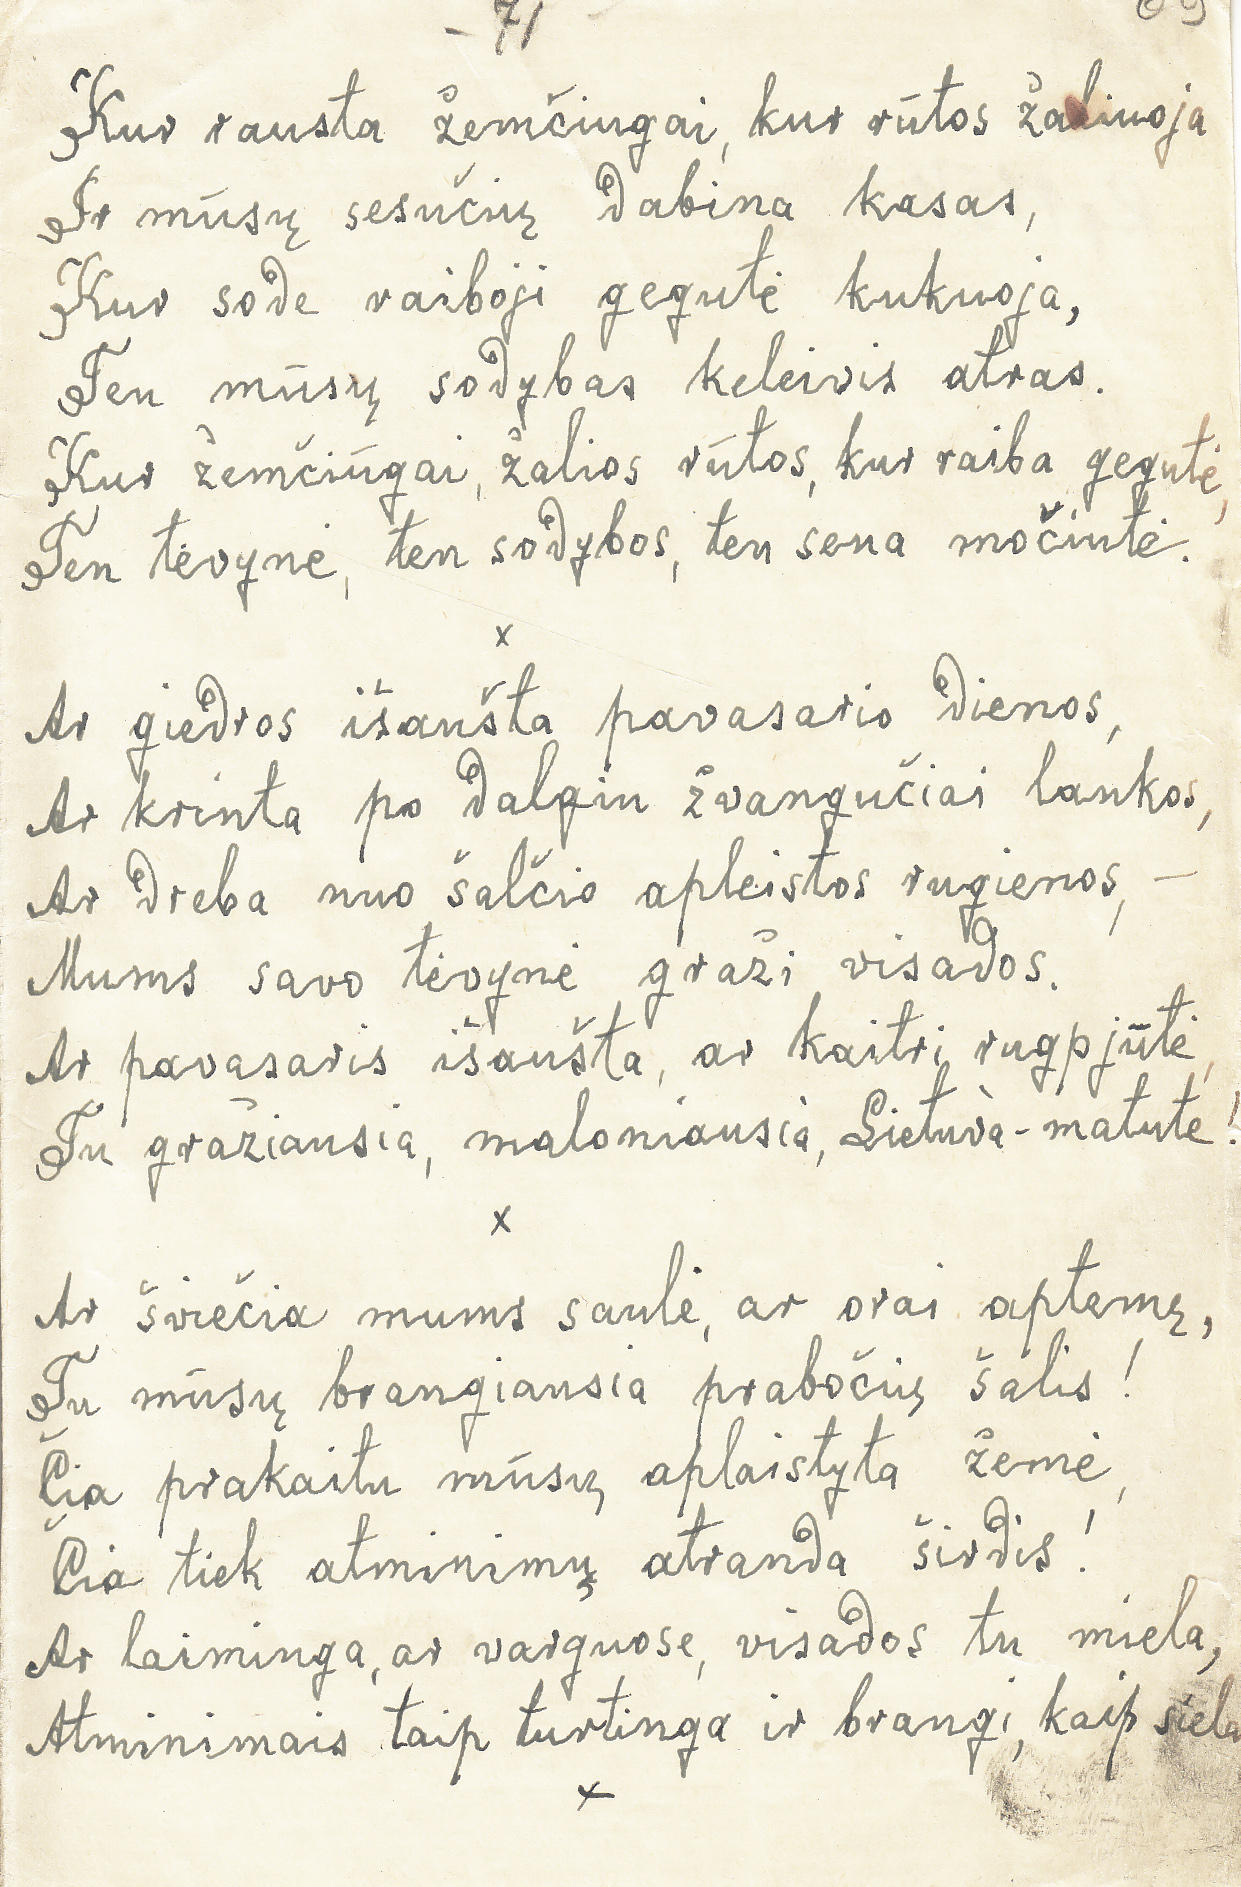 - 71
69
Kur rausta žemčiugai, kur rūtos žaliuoja
Ir mūsų sesučių dabina kasas,
Kur sode raiboji gegutė kukuoja,
Ten mūsų sodybas keleivis atras.
Kur žemčiūgai, žalios rūtos, kur raiba gegutė,
Ten tėvynė, ten sodybos, ten sena močiutė.
x
Ar giedros išaušta pavasario dienos,
Ar krinta po dalgiu žvangučiai lankos,
Ar dreba nuo šalčio apleistos rugienos, –
Mums savo tėvynė graži visados.
Ar pavasaris išaušta, ar kaitri rugpjūtė,
Tu gražiausia, maloniausia, Lietuva - matute!
x
Ar šviečia mums saulė, ar orai aptemę,
Tu mūsų brangiausia prabočių šalis!
Čia prakaitu mūsų aplaistyta žemė,
Čia tiek atminimų atranda širdis!
Ar laiminga, ar varguose, visados tu miela,
Atminimais taip turtinga ir brangi, kaip siela
x